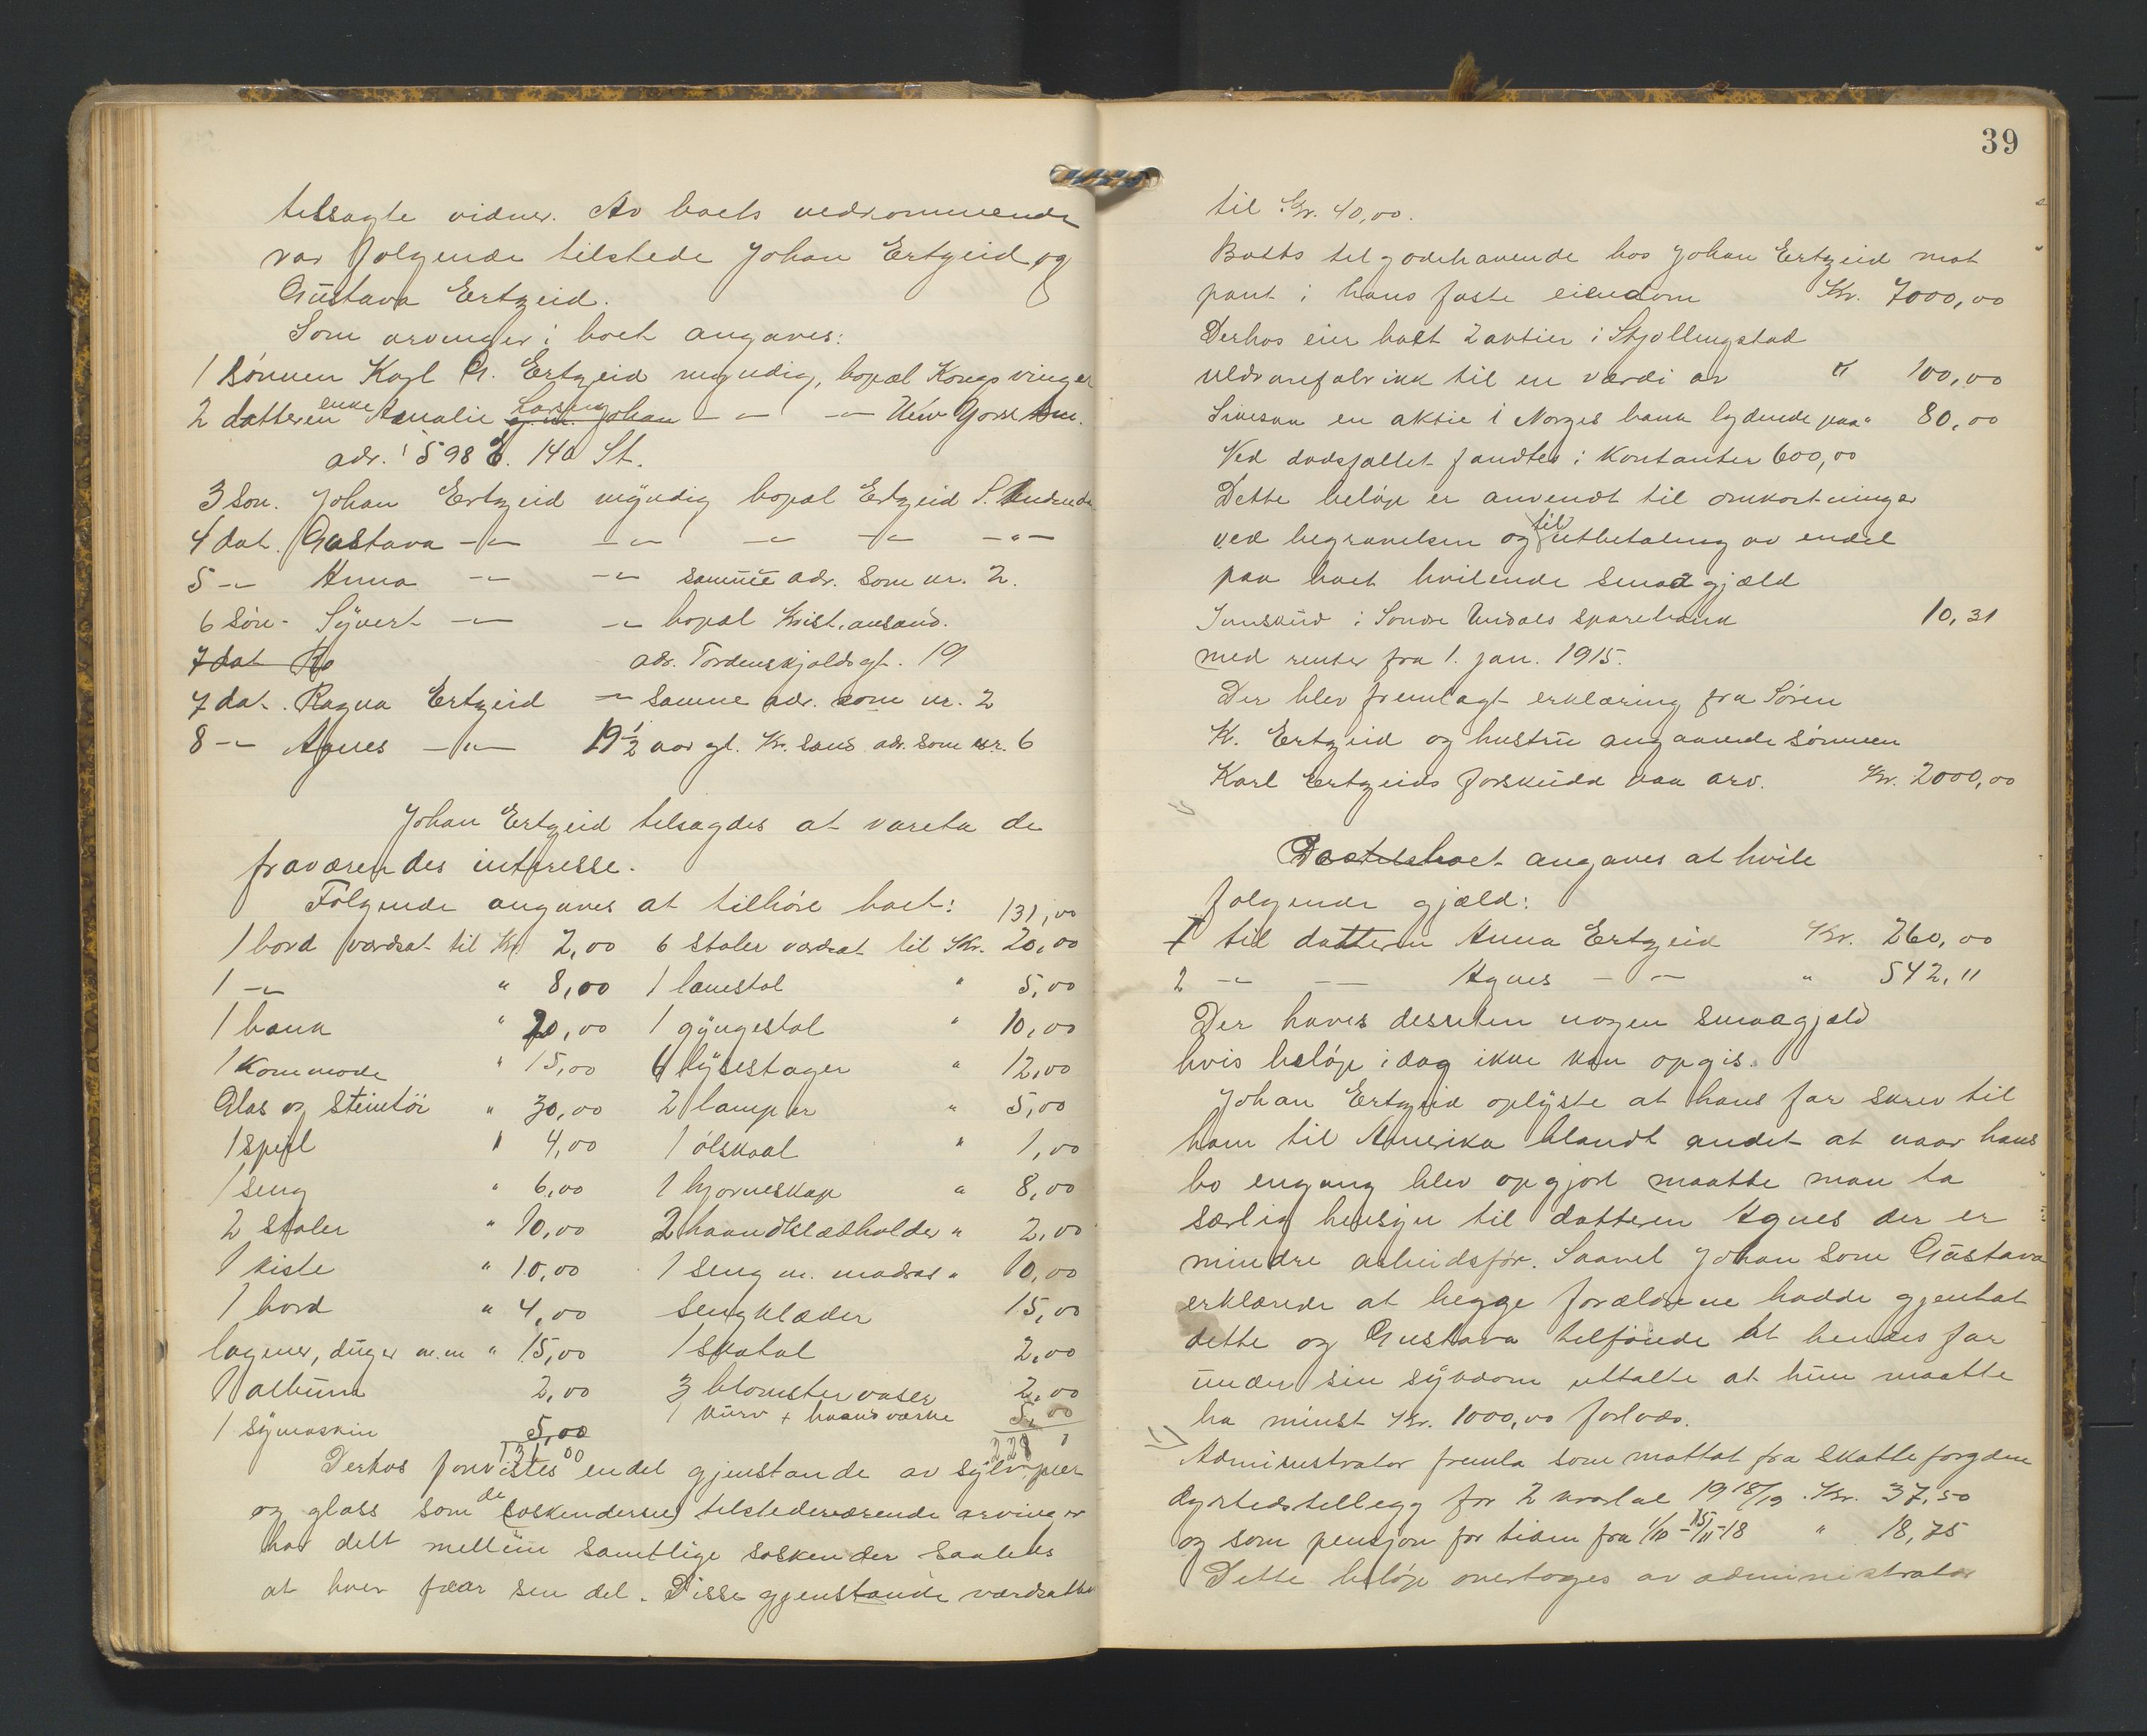 tilsagte vidner. Av boets vedkommende
var følgende tilstede Johan Ertzeid og
Gustava Ertzeid.
Som arvinger i boet angaves:
1 Sønnen Karl G. Ertzeid myndig, bopæl Kongsvinger
2 datteren enke Amalie Larsen Johan -"- -"- New York
adr. 598 E. 140 St.
3 Søn. Johan Ertzeid myndig bopæl Ertzeid S. Undal
4 dat. Gustava -"- -"- -"- -"- -"-
5 -"- Anna -"- -"- samme adr. som nr. 2.
6 Søn - Syvert -"- -"- bopæl Kristiansand.
7 dat Ro adr. Tordenskjoldsgt. 19
7 dat. Ragna Ertzeid -"- samme adr. som nr. 2
8 -"- Agnes -"- 19 1/2 aar gl. Kr.sand adr. som nr. 6
Johan Ertzeid tilsagdes at vareta de
fraværendes interesse.
Følgende angaves at tilhøre boet: 131,00
1 bord værdsat til Kr. 2,00 6 stoler værdsat til Kr. 20,00
1 -"- " 8,00 1 lænestol " 5,00
1 bænk " 20,00 1 gyngestol " 10,00
1 Kommode " 15,00 6 lysestager " 12,00
Glas og Steintøi " 30,00 2 lamper " 5,00
1 speil " 4,00 1 ølskaal " 1,00
1 seng " 6,00 1 hjørneskap " 8,00
2 stoler " 10,00 2 haandklædholder " 2,00
1 kiste " 10,00 1 seng m. madras " 10,00
1 bord " 4,00 Sengklæder 15,00
lagener, duger m.m " 15,00 1 skatol 2,00
1 album 2,00 3 blomstervaser 2,00
1 symaskin 5,00 1 kurv + haandværke 5,00
131 00 228
Derhos forevistes endel gjenstande av sylvpeer
og glass som de (søskendene) tilstedeværende arvinger
har delt mellem samtlige søskender saaledes
at hver faar sin del. Disse gjenstande værdsattes
39
til Kr. 40,00.
Boets tilgodehavende hos Johan Ertzeid mot
pant i hans faste eiendom Kr. 7000,00
Derhos eier boet 2 aktier i Skjollingstad
uldvarefabrikk til en værdi av " 100,00
Likesaa en aktie i Norges bank lydende paa " 80,00
Ved dødsfallet fandtes i Kontanter 600,00
Dette beløp er anvendt til omkostninger
ved begravelsen og til utbetaling av endel
paa boet hvilende smaagjæld
Innskud i Søndre Undals sparebank 10,31
med renter fra 1. jan. 1915.
Der blev fremlagt erklæring fra Søren
K. Ertzeid og hustru angaaende sønnen
Karl Ertzeids forskudd paa arv. Kr. 2000,00
Paa boet angaves at hvile
følgende gjæld:
1 til datteren Anna Ertzeid Kr. 260,00
2 -"- -- Agnes -"- " 542,11
Der haves desuten nogen smaagjæld
hvis beløp idag ikke kan opgis.
Johan Ertzeid oplyste at hans far skrev til
ham til Amerika blandt andet at naar hans
bo engang blev opgjort maatte man ta
særlig hensyn til datteren Agnes der er
mindre arbeidsfør. Saavel Johan som Gustava
erklærede at begge forældrene hadde gjentat
dette og Gustava tilføiede at hendes far
under sin sykdom uttalte at hun maatte
ha minst Kr. 1000,00 forlods.
Administrator fremla som mottat fra Skattefogden
dyrtidstillegg for 2 kvartal 1918/19. Kr. 37,50
og som pensjon for tiden fra 1/10 - 15/11-18 " 18,75
Dette beløp overtoges av administrator